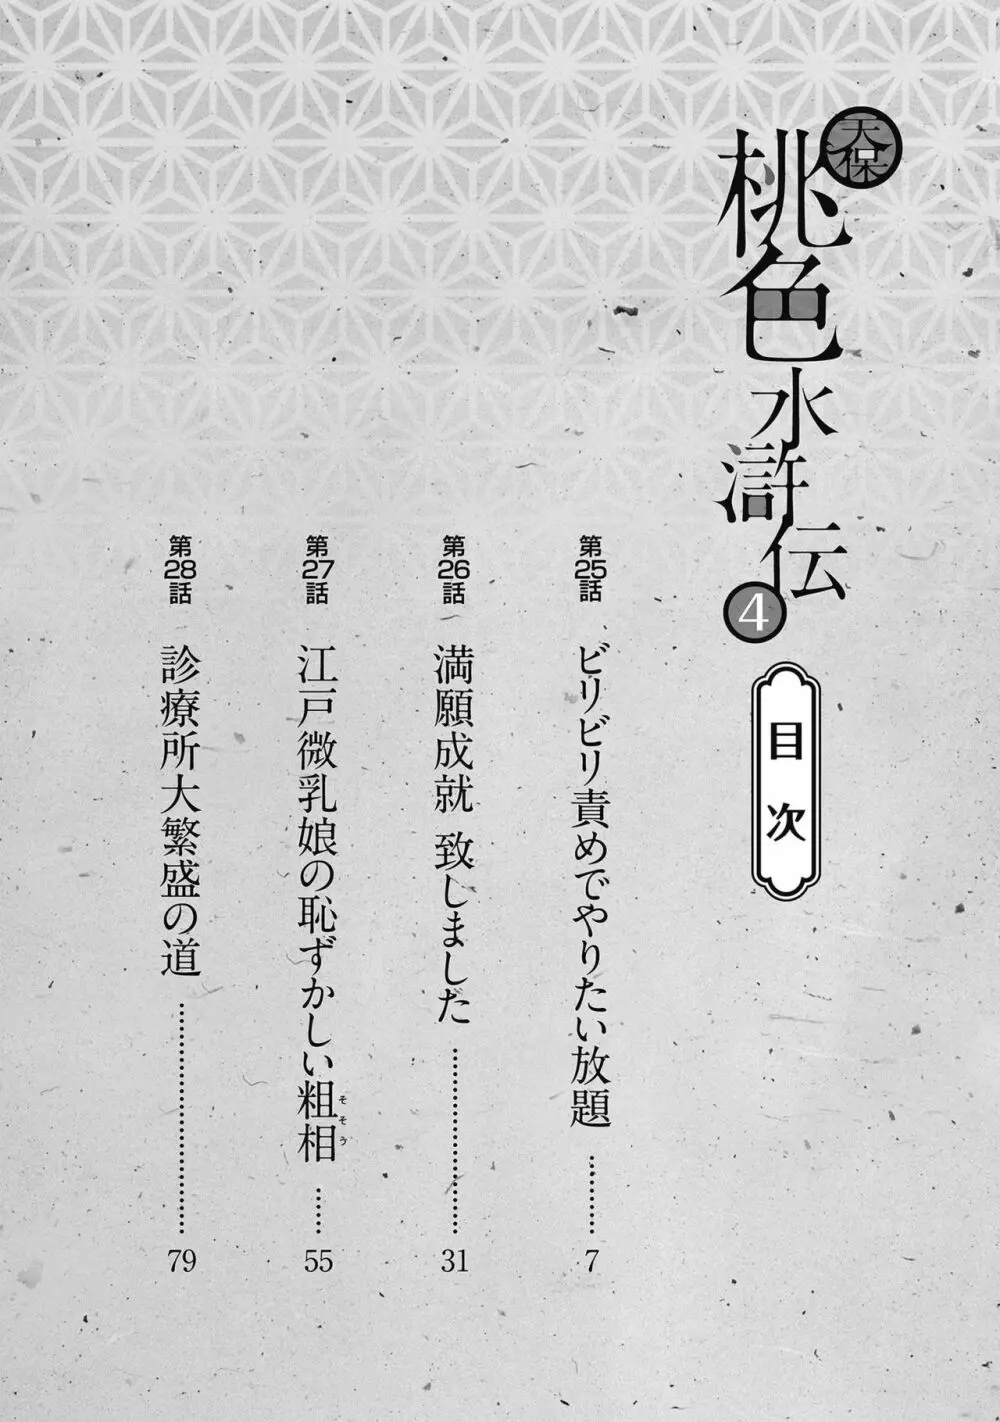 天保
桃色水滸伝
4
目次
第25話
ビリビリ責めでやりたい放題
7
第26話
満願成就 致しました
31
第27話
江戸微乳娘の恥ずかしい粗相
そそう
55
第28話
診療所大繁盛の道
79